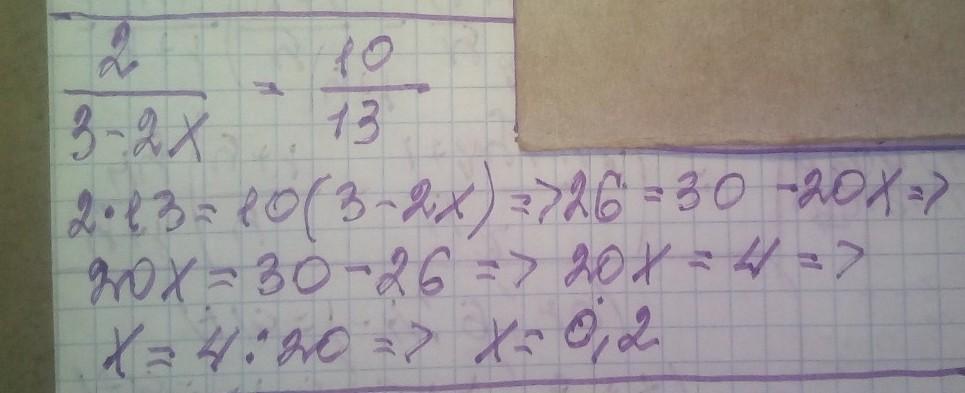 2 / (3-2x) = 10 / 13
2·13=10(3-2x)=>26=30-20x=>
20x=30-26=>20x=4=>
x=4:20=> x=0,2